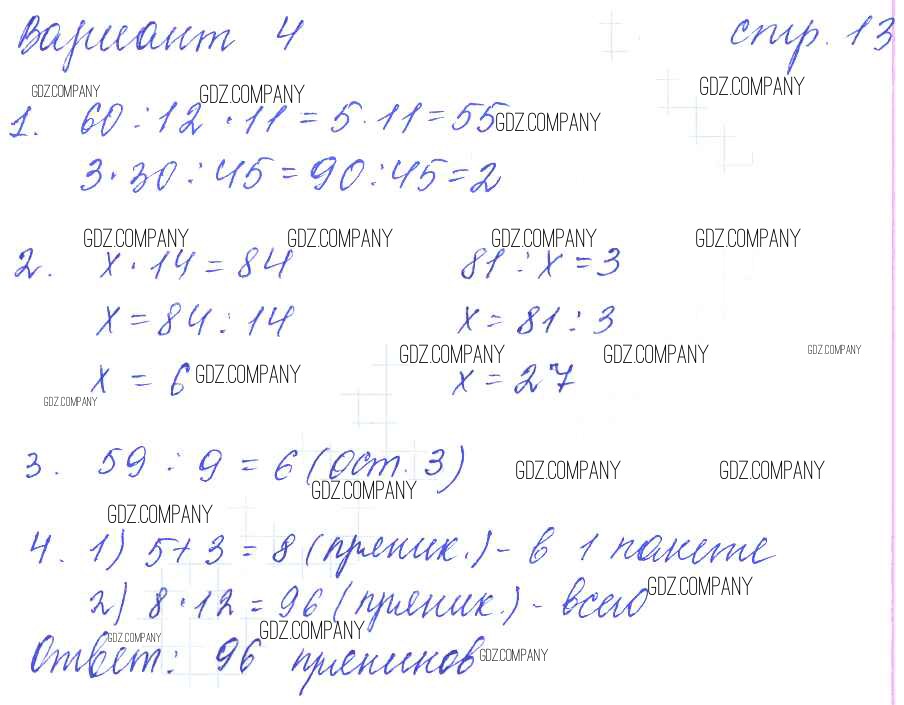 Вариант 4 стр. 13
GDZ.COMPANY GDZ.COMPANY GDZ.COMPANY
1. 60 : 12 · 11 = 5 · 11 = 55 GDZ.COMPANY
3 · 30 : 45 = 90 : 45 = 2
GDZ.COMPANY GDZ.COMPANY GDZ.COMPANY GDZ.COMPANY
2. x · 14 = 84 81 : x = 3
x = 84 : 14 x = 81 : 3
GDZ.COMPANY GDZ.COMPANY GDZ.COMPANY
x = 6 GDZ.COMPANY x = 27
GDZ.COMPANY
3. 59 : 9 = 6 (ост. 3) GDZ.COMPANY GDZ.COMPANY
GDZ.COMPANY
GDZ.COMPANY
4. 1) 5 + 3 = 8 (пряник.) - в 1 пакете
2) 8 · 12 = 96 (пряник.) - всего GDZ.COMPANY
GDZ.COMPANY GDZ.COMPANY
Ответ: 96 пряников GDZ.COMPANY